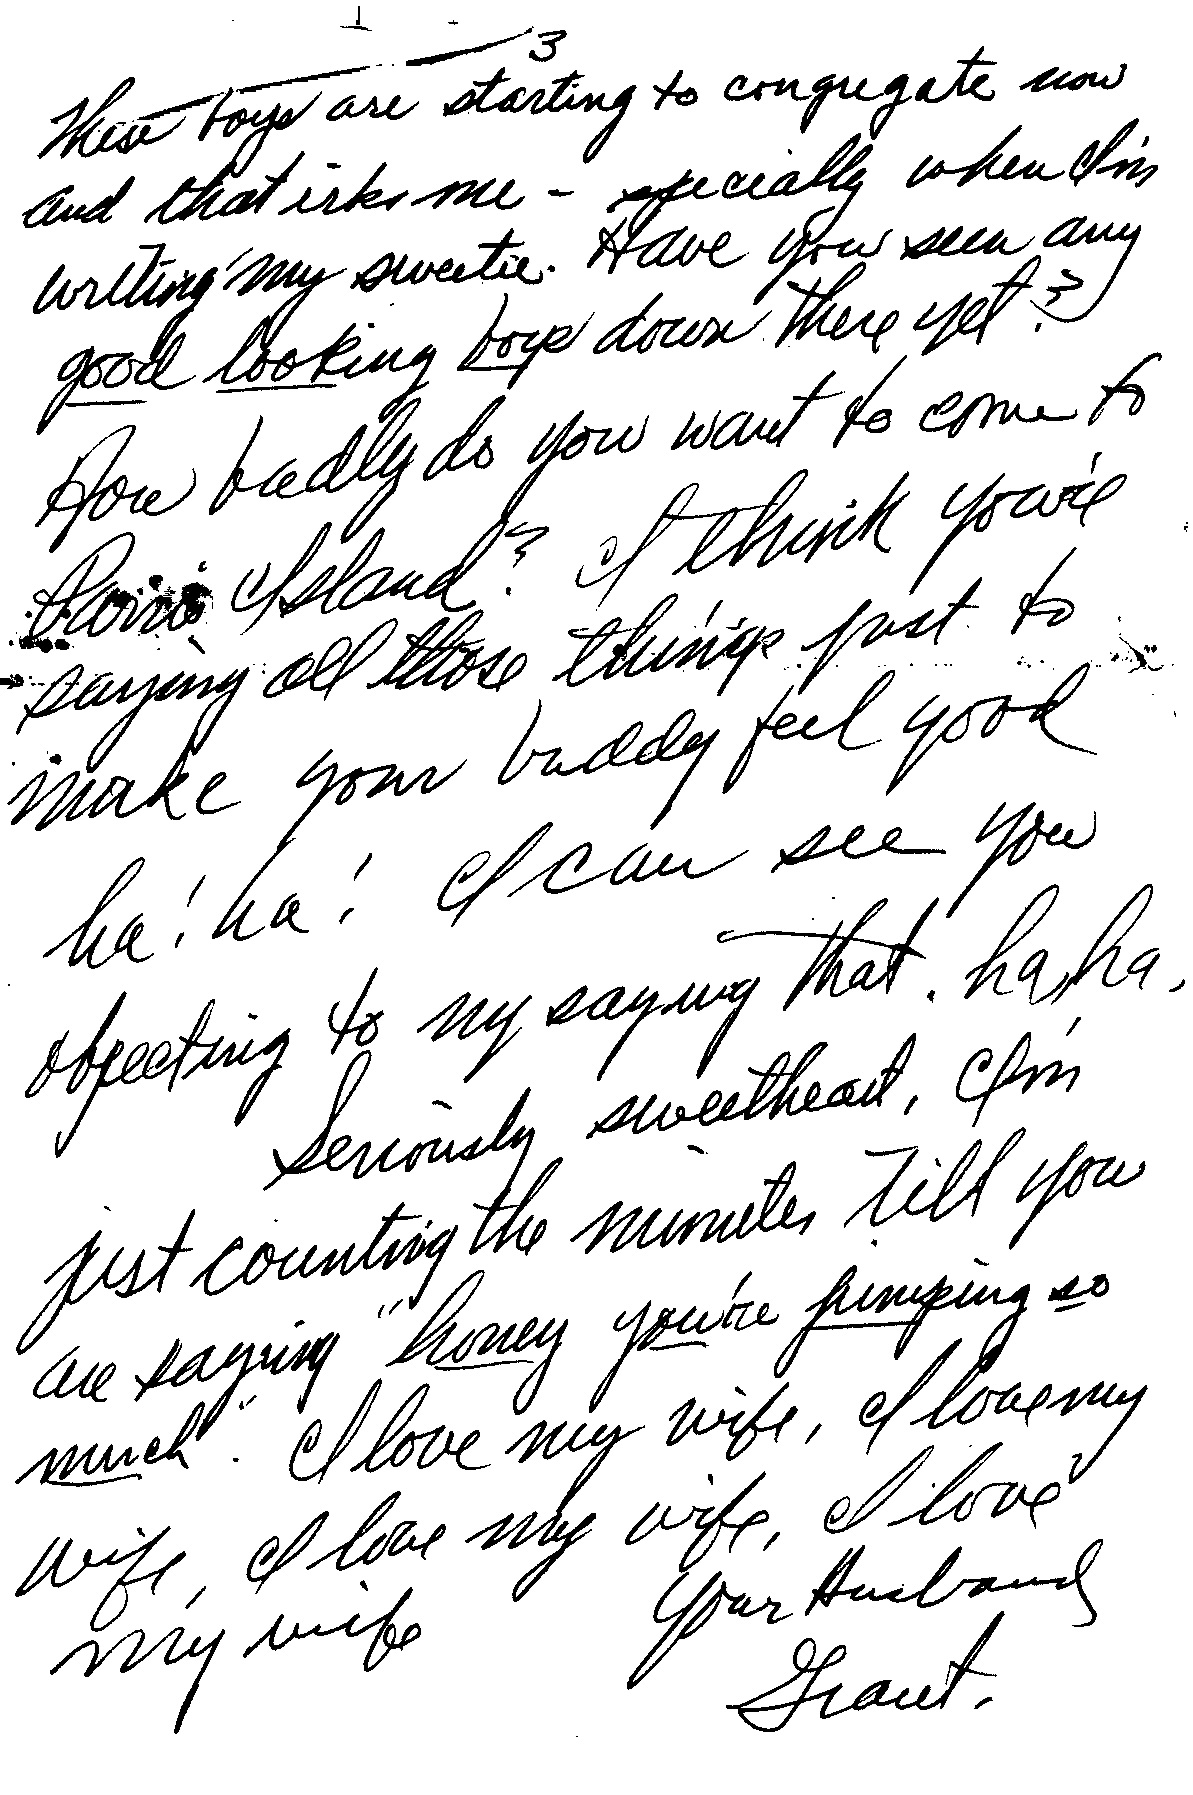 3
These boys are starting to congregate now
and that irks me - especially when I'm
writing my sweetie. Have you seen any
good looking boys down there yet?
How badly do you want to come to
Parris Island? I think you're
saying all those things just to
make your buddy feel good
ha! ha! I can see you
objecting to my saying that. ha, ha,
Seriously sweetheart, I'm
just counting the minutes till you
are saying "honey you're jumping so
much". I love my wife, I love my
wife, I love my wife, I love
my wife Your Husband
Grant.